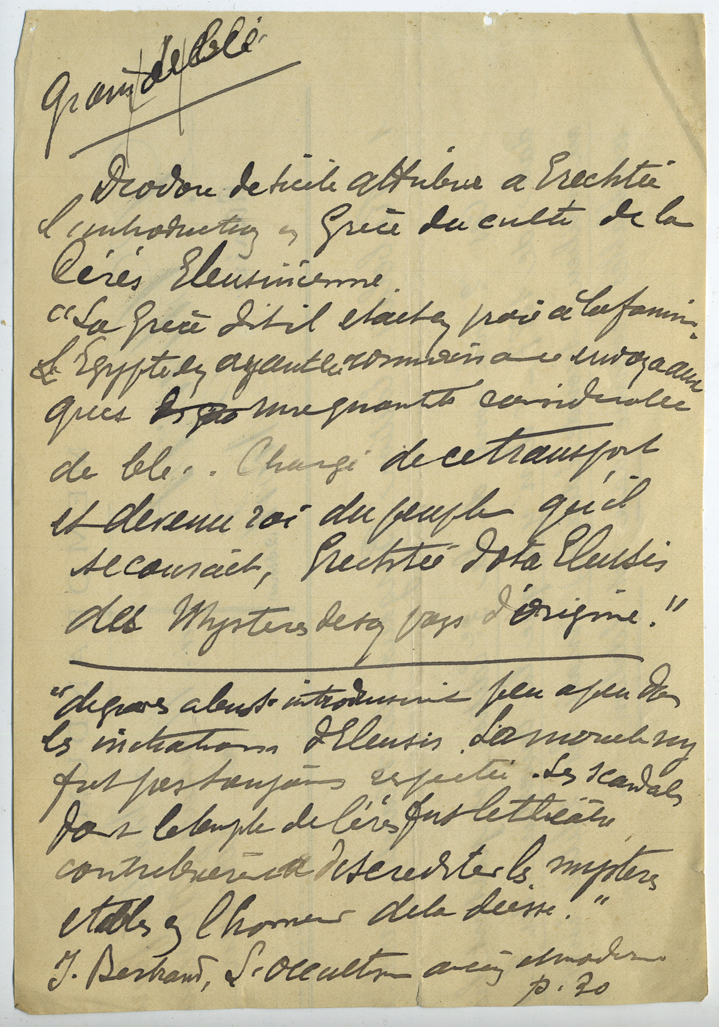 Grain de blé
Diodore de Sicile attribue a Erechtée
l'introduction en Grèce du culte de la
Cérés Eleusinienne
"La Grèce dit il etait en proie à la famine.
L'Egypte en ayant eu connaissance envoya aux
grecs une quantité considerable
de ble.. Chargé de ce transport
et devenu roi du peuple qu'il
secourait, Erechtée dota Eleusis
des Mysteres de son pays d'origine."
"de graves abus s'introduisirent peu a peu dans
les initiations d'Eleusis. La morale n'y
fut pas toujours respectée. Les scandales
dont le temple de Cérés fut le théatre
contribuèrent a discrediter les mystères
etablis en l'honneur de la déesse."
J. Bertrand, L'Occultisme ancien et moderne
p. 20